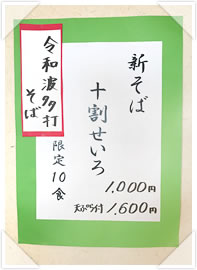 新そば
十割せいろ
1,000円
天ぷら付 1,600円
限定10食
令和波多打
そば